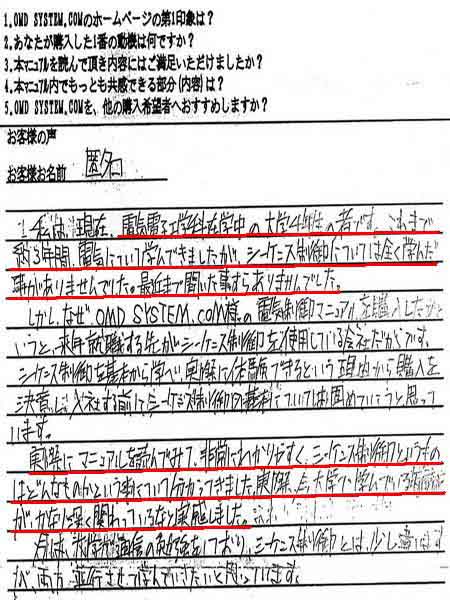 1.OMD SYSTEM.COMのホームページの第1印象は？
2.あなたが購入した1番の動機は何ですか？
3.本マニュアルを読んで頂き内容にはご満足いただけましたか？
4.本マニュアル内でもっとも共感できる部分(内容)は？
5.OMD SYSTEM.COMを、他の購入希望者へおすすめしますか？
お客様の声
お客様お名前 匿名
1 私は現在、電気電子工学科在学中の大学4年生の者です。これまで
約3年間、電気について学んできましたが、シーケンス制御については全く学んだ
事がありませんでした。最近まで聞いた事すらありませんでした。
しかし、なぜOMD SYSTEM.COM様の電気制御マニュアルを購入したかと
いうと、来年就職する先がシーケンス制御を使用している会社だからです。
シーケンス制御を基本から学べ、実際に体感できるという理由から購入を
決意し、入社する前にシーケンス制御の基本については固めていこうと思って
います。
実際にマニュアルを読んでみて、非常にわかりやすく、シーケンス制御というもの
はどんなものかという事について分かってきました。実際、今大学で学んでいる
が、かなり深く関わっているなと実感しました。
今は、数学か通信の勉強をしており、シーケンス制御とは、少し違いはす
が、両方並行させて学んでいきたいと思っています。